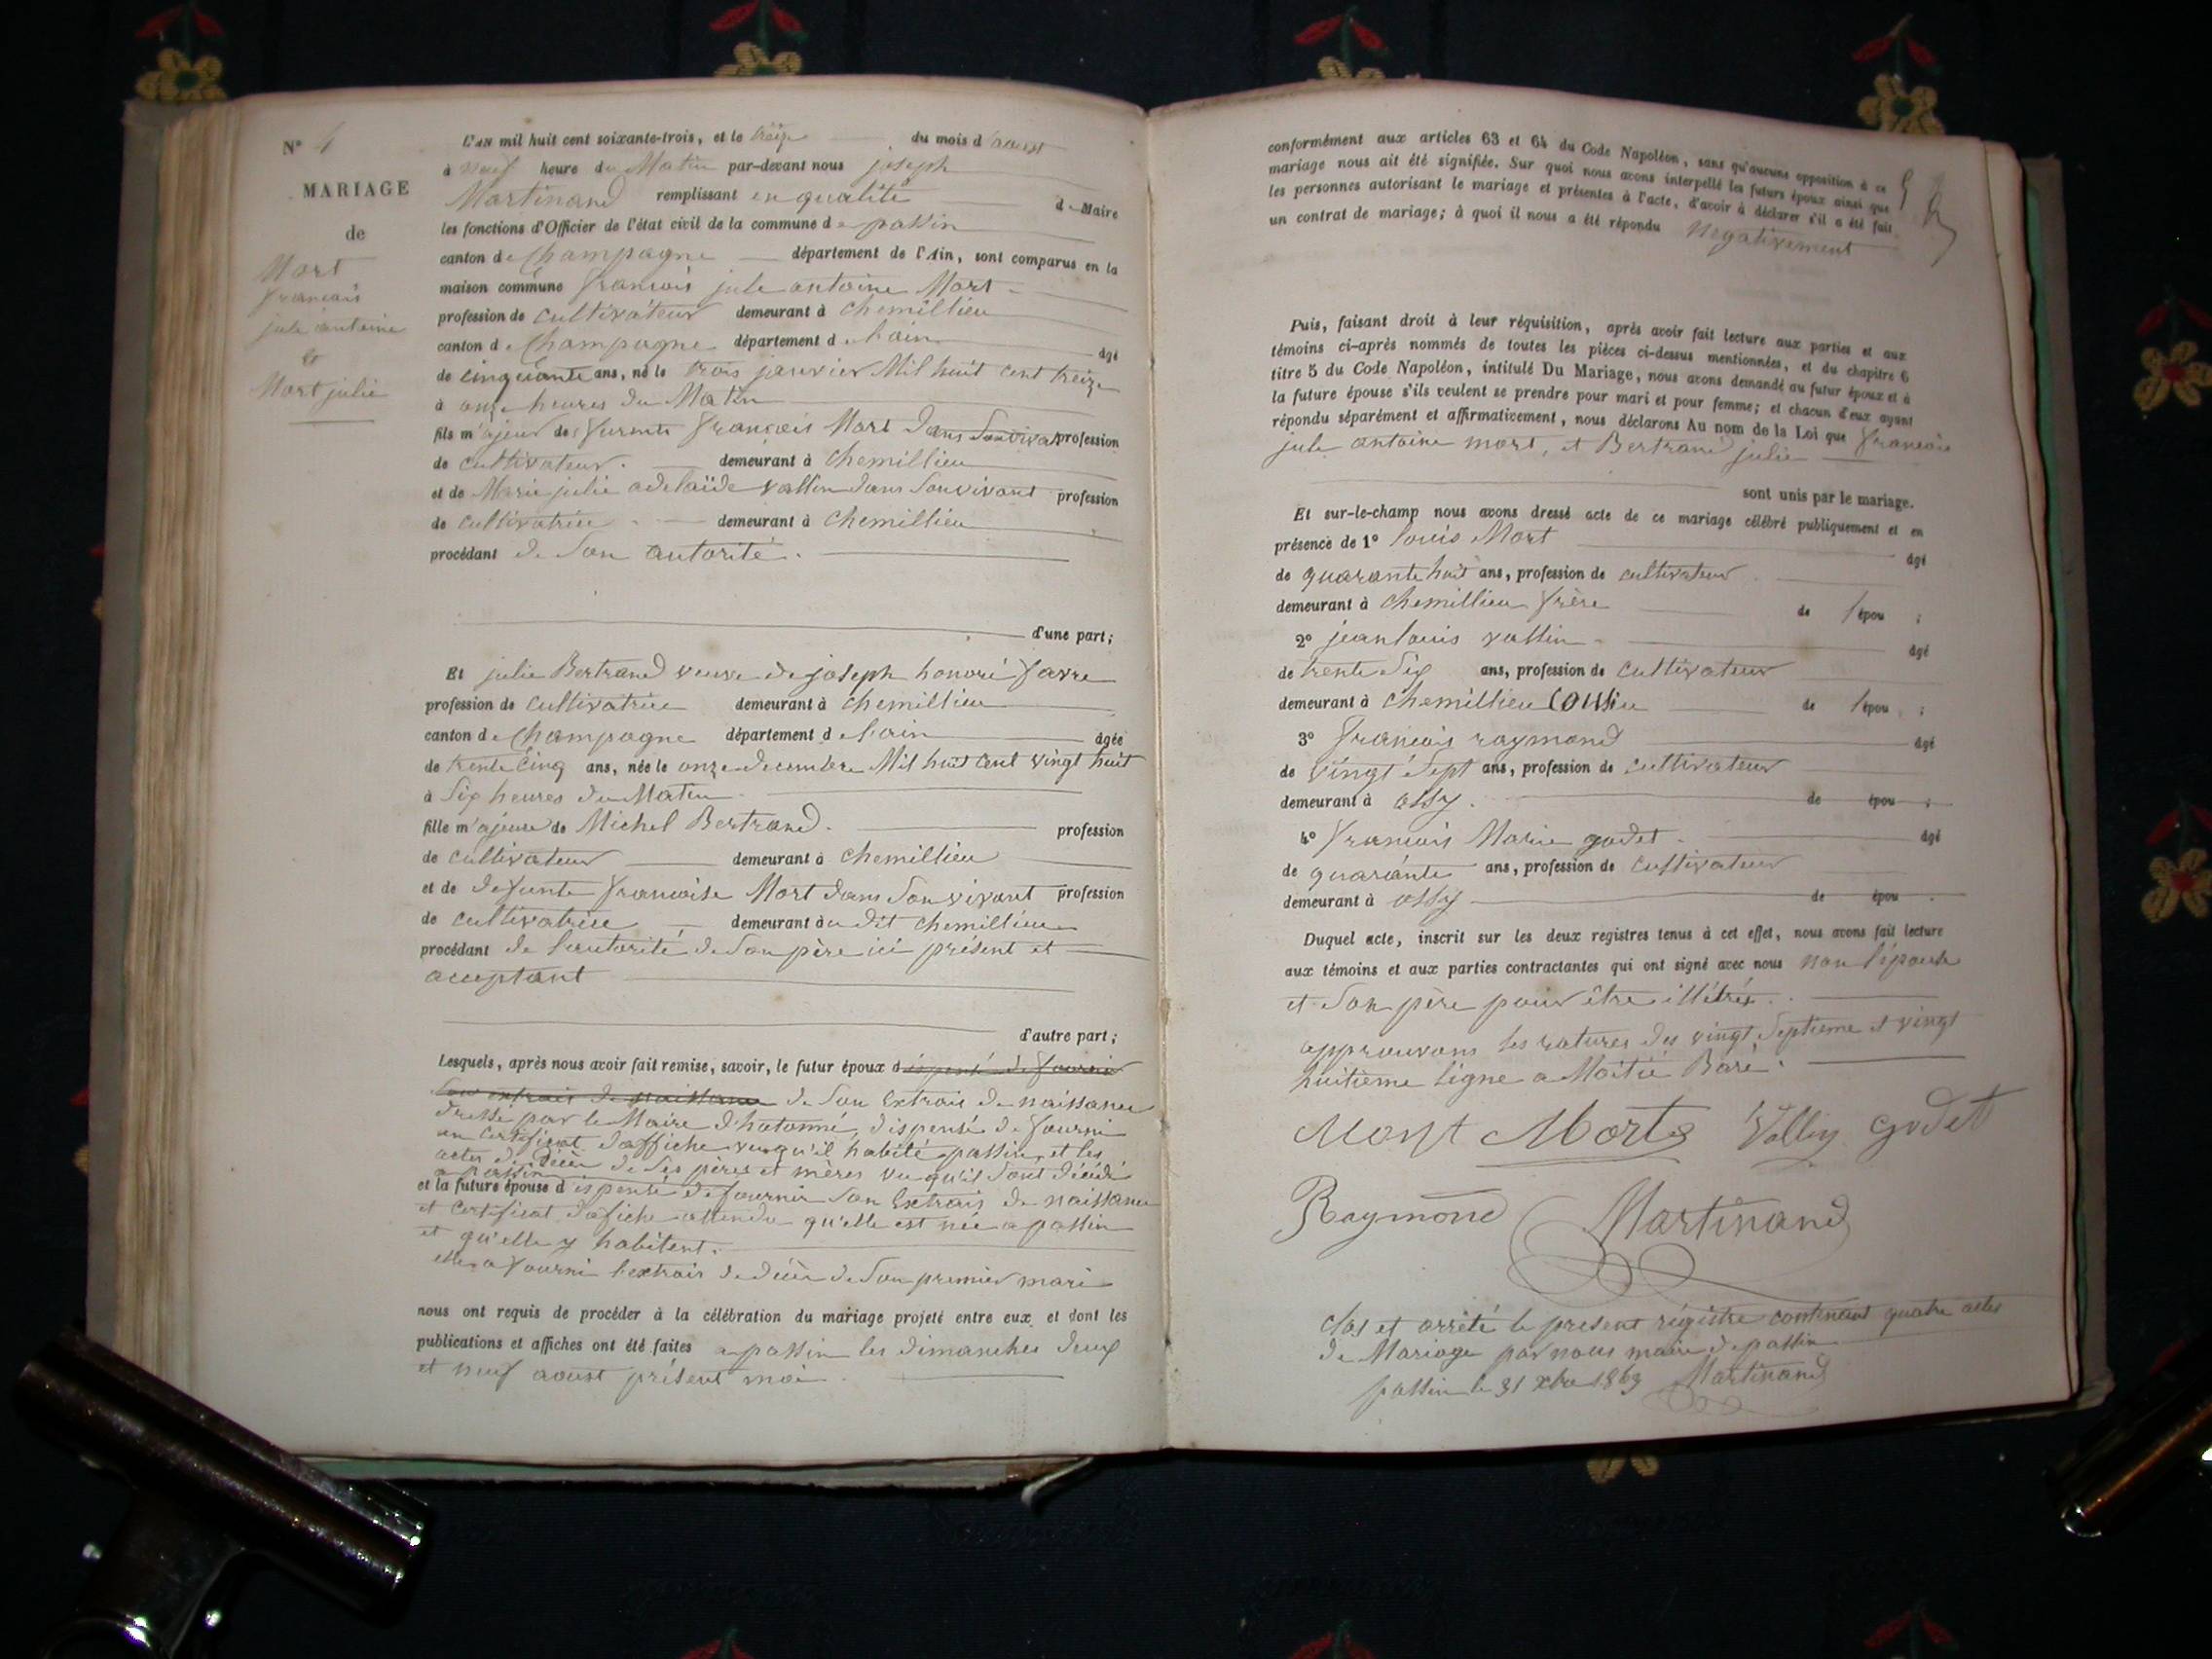 N° 4
MARIAGE
de
Mort
francois
jule antoine
et
Mort julie
L'AN mil huit cent soixante-trois, et le treize du mois d'aoust
à neuf heure du Matin par-devant nous joseph
Martinand remplissant en qualité de Maire
les fonctions d'Officier de l'état civil de la commune de passin
canton de Champagne département de l'Ain, sont comparus en la
maison commune francois jule antoine Mort
profession de cultivateur demeurant à chemillieu
canton de Champagne département de lain âgé
de cinquante ans, né le trois janvier Mil huit cent treize
à onze heures du Matin
fils majeur de furent francois Mort Dans Son vivat profession
de cultivateur demeurant à chemillieu
et de Marie julie adelaïde vallin dans Son vivant profession
de cultivatrice demeurant à chemillieu
procédant de Son autorité.
d'une part;
Et julie Bertrand veuve de joseph honoré favre
profession de cultivatrice demeurant à chemillieu
canton de Champagne département de lain âgée
de trente Cinq ans, née le onze decembre Mil huit Cent vingt huit
à Six heures du Matin
fille majeure de Michel Bertrand. profession
de cultivateur demeurant à chemillieu
et de defunte francoise Mort dans Son vivant profession
de cultivatrice demeurant au dit chemillieu
procédant de lautorité de Son père ici présent et
acceptant
d'autre part;
Lesquels, après nous avoir fait remise, savoir, le futur époux dispensé de fournir
Son extrais de naissance de Son Extrais de naissance
dressé par le Maire d'hotonne, dispensé de fourni
un Certificat daffiche vu qu'il habite passin, et les
actes de décès de Ses pères et mères vu qu'il Sont décédé
a passin
et la future épouse dispensé de fournir Son Extrais de naissance
et Certificat dafiche attendu qu'elle est née a passin
et qu'elle y habitent.
elle a fourni lextrais de décès de Son premier mari
nous ont requis de procéder à la célébration du mariage projeté entre eux, et dont les
publications et affiches ont été faites a passin les dimanches deux
et neuf aoust présent moi
conformément aux articles 63 et 64 du Code Napoléon, sans qu'aucune opposition à ce
mariage nous ait été signifiée. Sur quoi nous avons interpellé les futurs époux ainsi que
les personnes autorisant le mariage et présentes à l'acte, d'avoir à déclarer s'il a été fait
un contrat de mariage; à quoi il nous a été répondu Negativement
Puis, faisant droit à leur réquisition, après avoir fait lecture aux parties et aux
témoins ci-après nommés de toutes les pièces ci-dessus mentionnées, et du chapitre 6
titre 5 du Code Napoléon, intitulé Du Mariage, nous avons demandé au futur époux et à
la future épouse s'ils veulent se prendre pour mari et pour femme; et chacun d'eux ayant
répondu séparément et affirmativement, nous déclarons Au nom de la Loi que francois
jule antoine mort, et Bertrand julie
sont unis par le mariage.
Et sur-le-champ nous avons dressé acte de ce mariage célébré publiquement et en
présence de 1° louis Mort âgé
de quarante huit ans, profession de cultivateur
demeurant à chemillieu frère de l'épou ;
2° jean louis vallin âgé
de trente Six ans, profession de cultivateur
demeurant à chemillieu Cousin de l'épou ;
3° francois raymond âgé
de vingt Sept ans, profession de cultivateur
demeurant à ossy. de épou ;
4° francois Marie godet âgé
de quarante ans, profession de Cultivateur
demeurant à ossy de épou .
Duquel acte, inscrit sur les deux registres tenus à cet effet, nous avons fait lecture
aux témoins et aux parties contractantes qui ont signé avec nous non l'épouse
et Son père pour être illétrés.
approuvons les ratures des vingt Septieme et vingt
huitieme ligne a Moitié Baré.
Mort Morts Vallin godet
Raymond Martinand
Clos et arrêté le present régistre contenant quatre actes
de Mariage par nous maire de passin
passin le 31 xbre 1863 Martinand